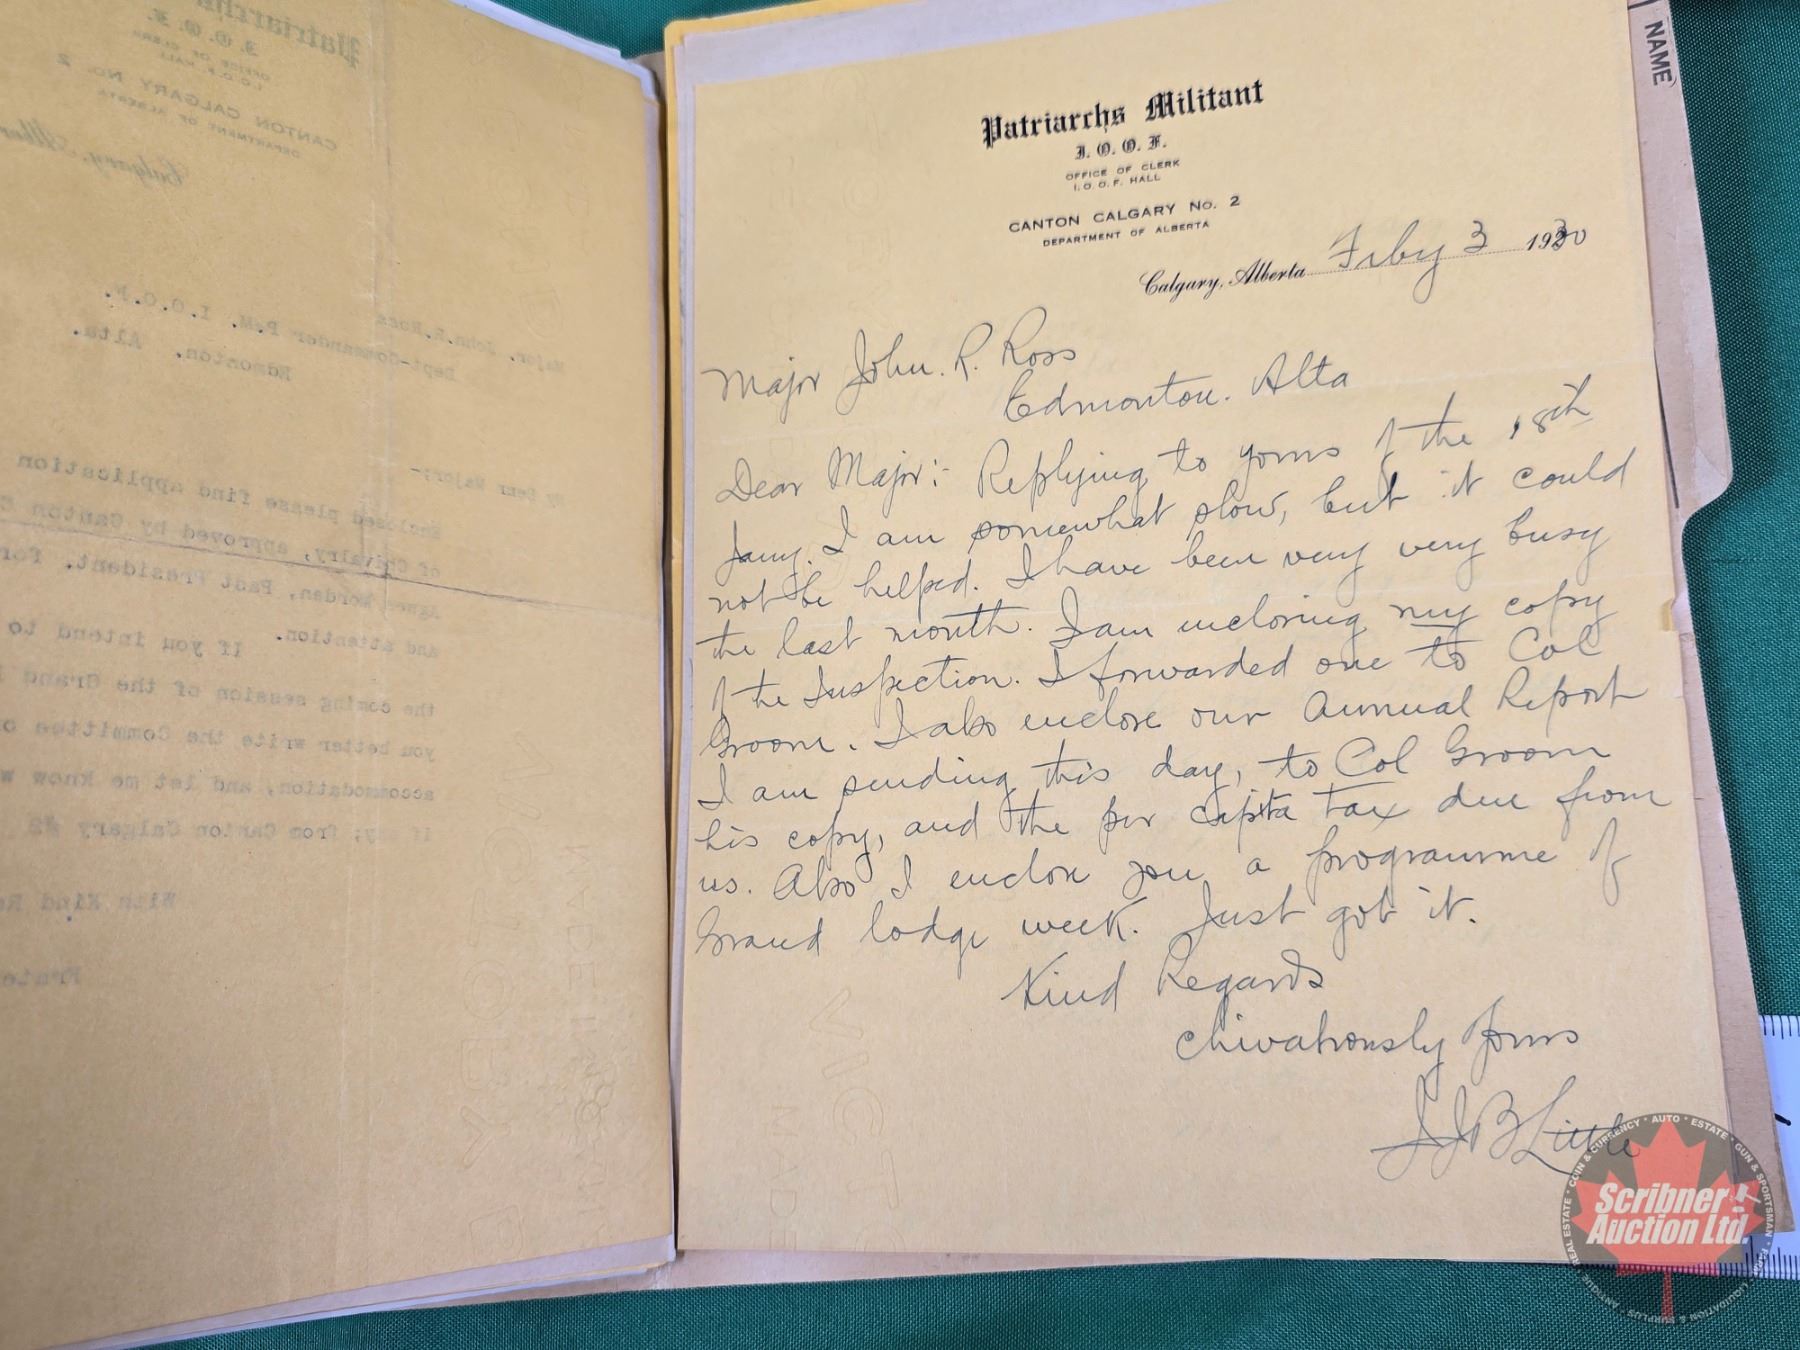 Patriarchs Militant
I. O. O. F.
OFFICE OF CLERK
I. O. O. F. HALL
CANTON CALGARY No. 2
DEPARTMENT OF ALBERTA
Calgary, Alberta
Patriarchs Militant
I. O. O. F.
OFFICE OF CLERK
I. O. O. F. HALL
CANTON CALGARY No. 2
DEPARTMENT OF ALBERTA
Calgary, Alberta Feby 3 1930
Major. John.R.Ross
Dept-Commander P.M. I.O.O.F.
Edmonton, Alta.
My Dear Major;-
Enclosed please find application
of Chivalry, approved by Canton
Agnes Worden, Past President, For
and attention. If you intend to
the coming session of the Grand
you better write the Committee
accommodation, and let me know
if any; from Canton Calgary #2
With Kind
Major John. R. Ross
Edmonton. Alta
Dear Major:- Replying to yours of the 18th
Jany. I am somewhat slow, but it could
not be helped. I have been very very busy
the last month. I am inclosing my copy
of the Inspection. I forwarded one to Col
Groom. I also enclose our Annual Report
I am sending this day, to Col Groom
his copy, and the per capita tax due from
us. Also I enclose you a programme of
Grand lodge week. Just got it.
Kind Regards
Chivalrously Yours
J J B Little
NAME
MADE
VICTO
Scribner
Auction Ltd.
COIN & CURRENCY • AUTO • ESTATE • GUN & SPORTSMAN • FARM • LIQUIDATION & SURPLUS • ANTIQUE • REAL ESTATE